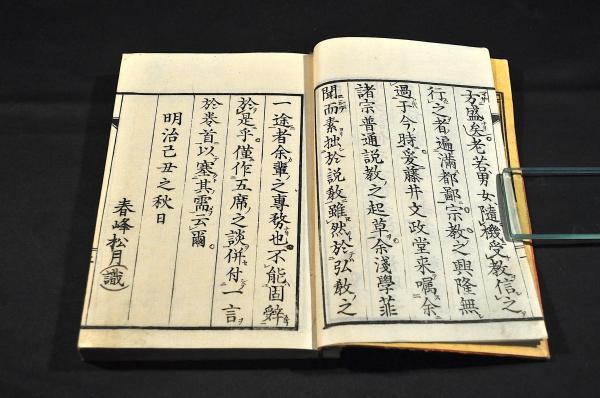 方盛矣老若男女隨機受教信之
行之者遍滿都鄙宗教之興隆無
過于今時爰藤井文政堂来嘱余
諸宗普通説教之起草余淺學菲
聞而素拙於説教雖然於弘教之
一途者余輩之専務也不能固辤
於是乎僅作五席之談併付一言
於巻首以塞其需云爾
明治己丑之秋日
春峰松月(識)